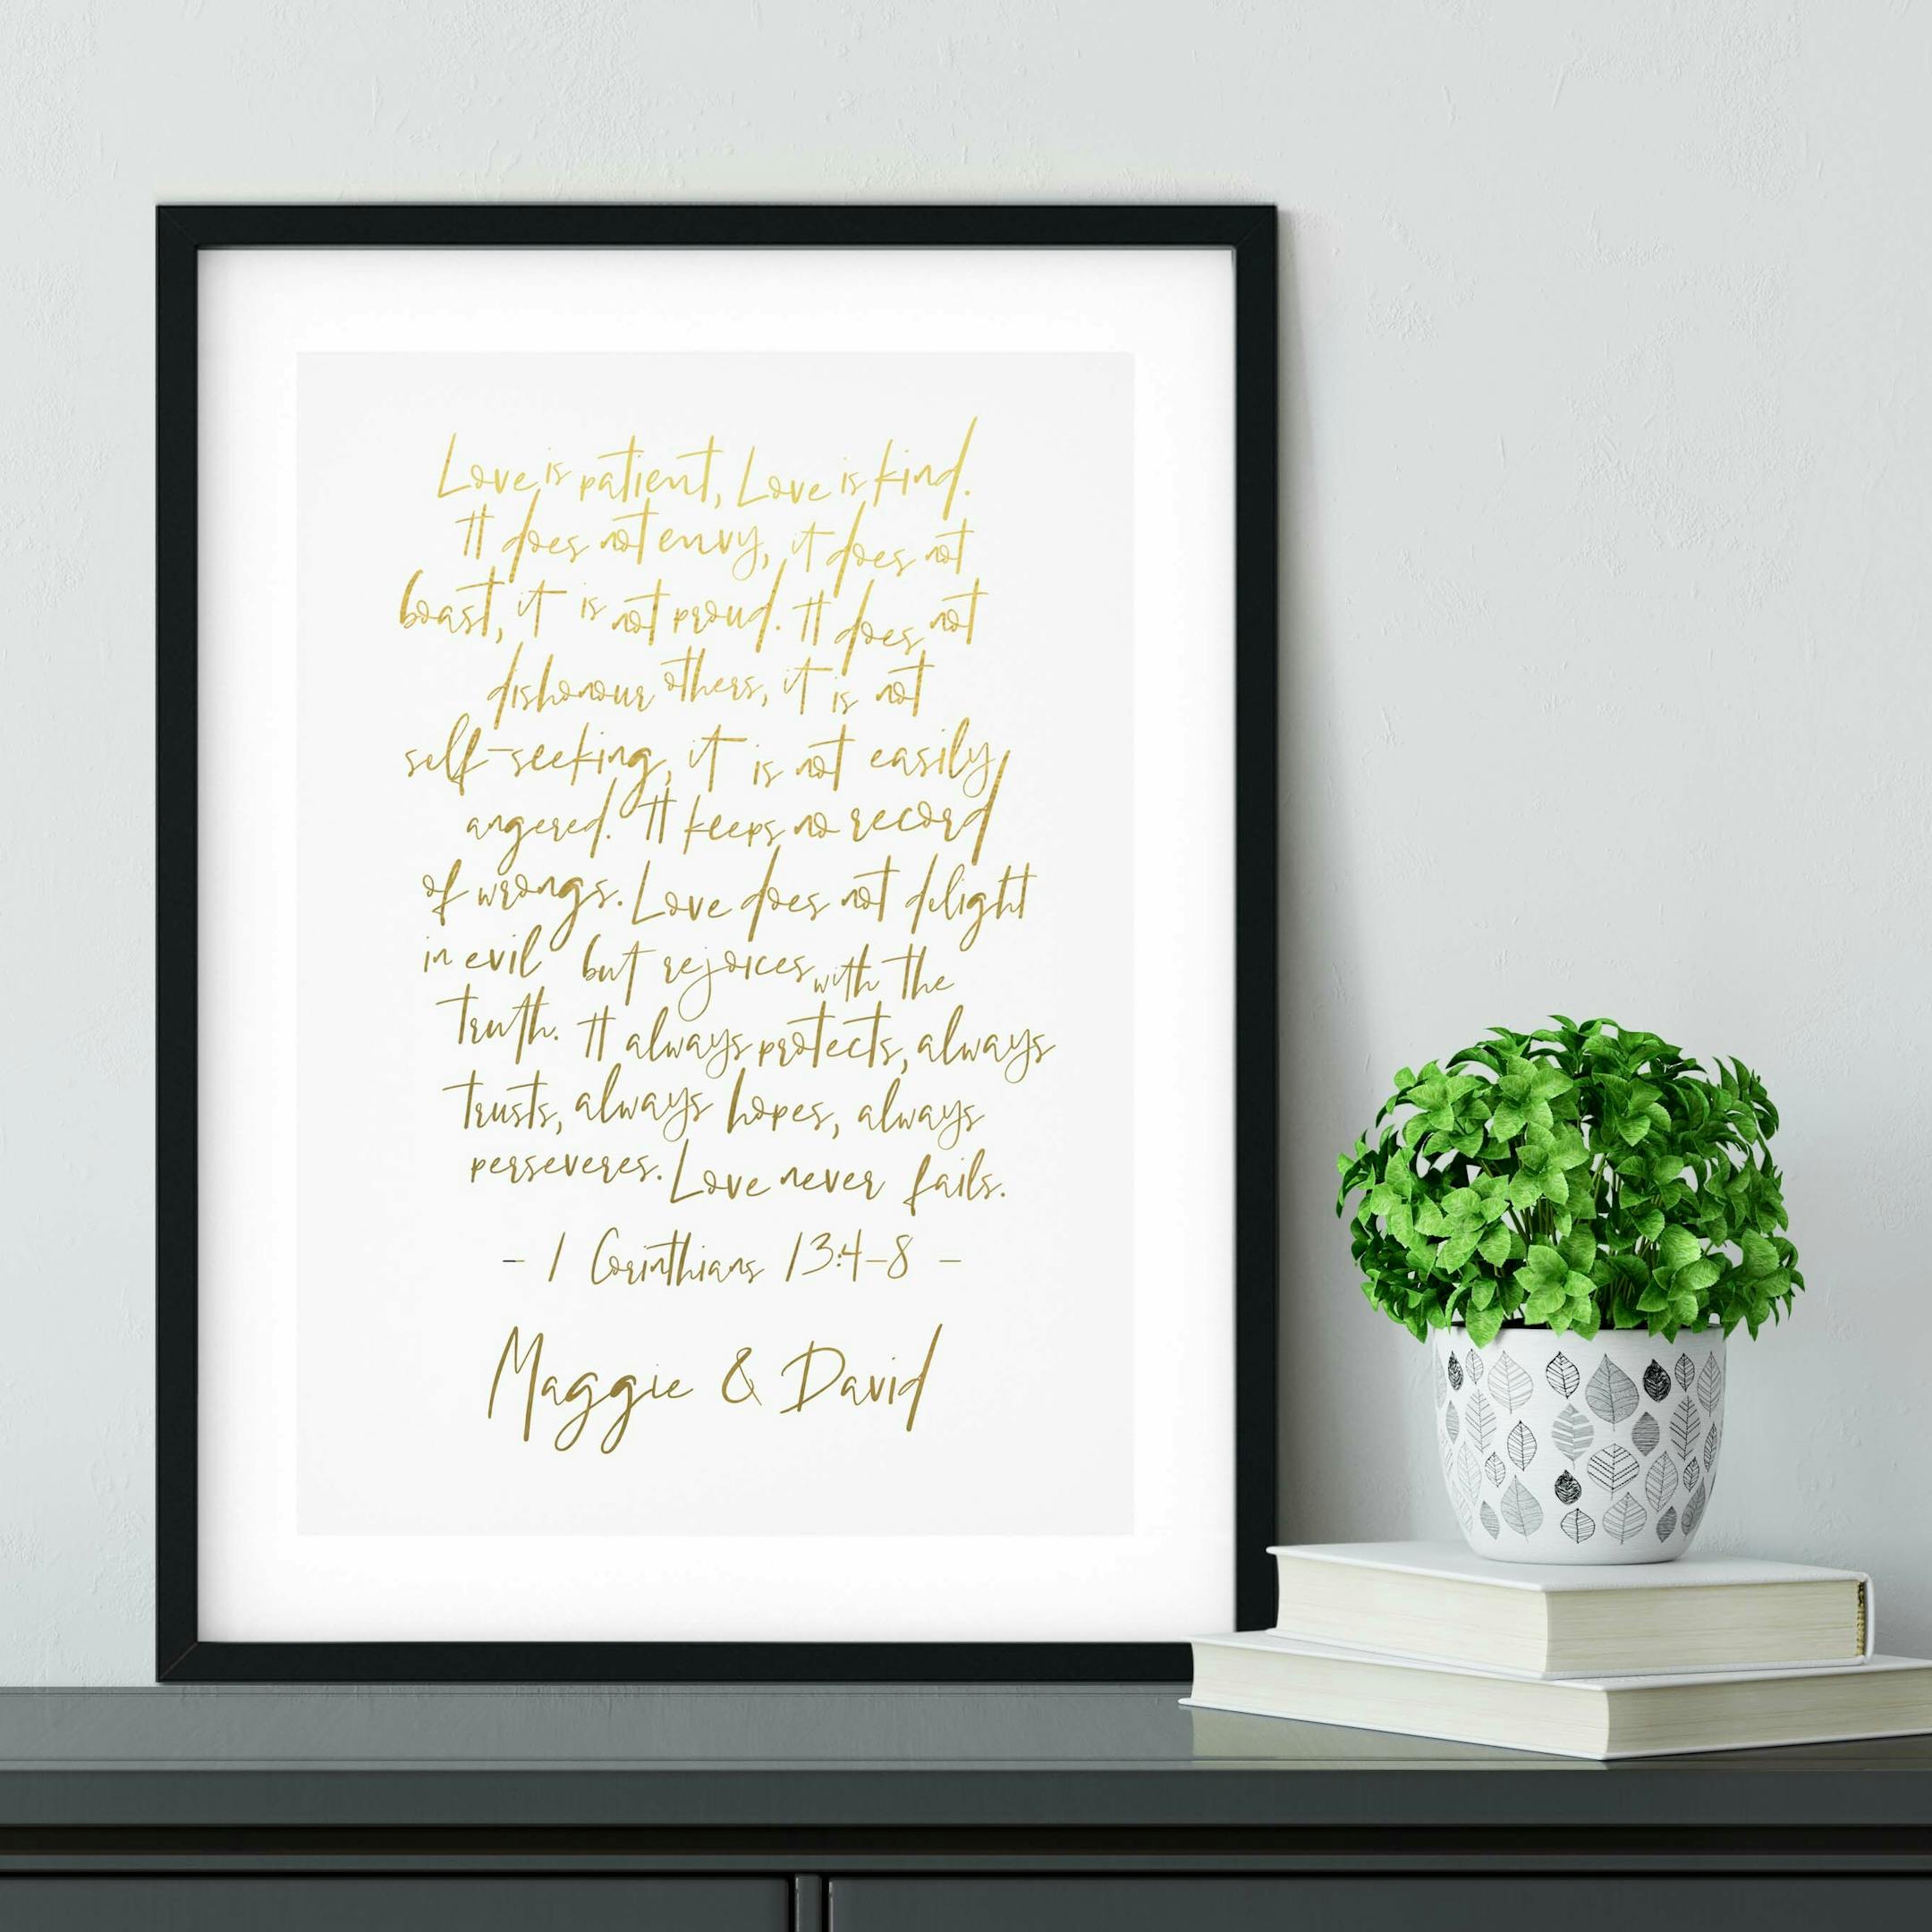 Love is patient, Love is kind.
It does not envy, it does not
boast, it is not proud. It does not
dishonour others, it is not
self-seeking, it is not easily
angered. It keeps no record
of wrongs. Love does not delight
in evil but rejoices with the
truth. It always protects, always
trusts, always hopes, always
perseveres. Love never fails.
- 1 Corinthians 13:4-8 -
Maggie & David